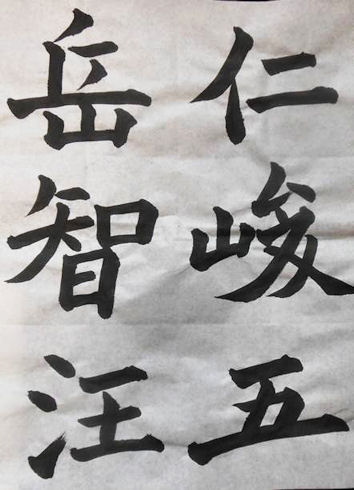 仁峻五
岳智汪